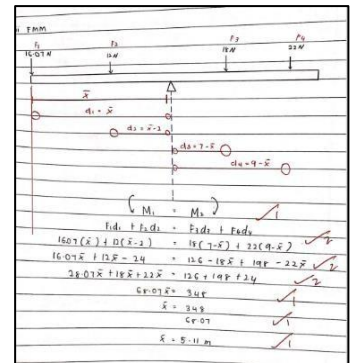 FMM
F1 F2 F3 F4
16.07N 12N 18N 22N
x̄
d1 = x̄
d2 = x̄-2
d3 = 7-x̄
d4 = 9-x̄
M1 = M2 ✓1
F1d1 + F2d2 = F3d3 + F4d4
1607(x̄) + 12(x̄-2) = 18(7-x̄) + 22(9-x̄) ✓2
16.07x̄ + 12x̄ - 24 = 126 - 18x̄ + 198 - 22x̄ ✓2
28.07x̄ + 18x̄ + 22x̄ = 126 + 198 + 24 ✓2
68.07x̄ = 348 ✓1
x̄ = 348
68.07 ✓1
x̄ = 5.11 m ✓1